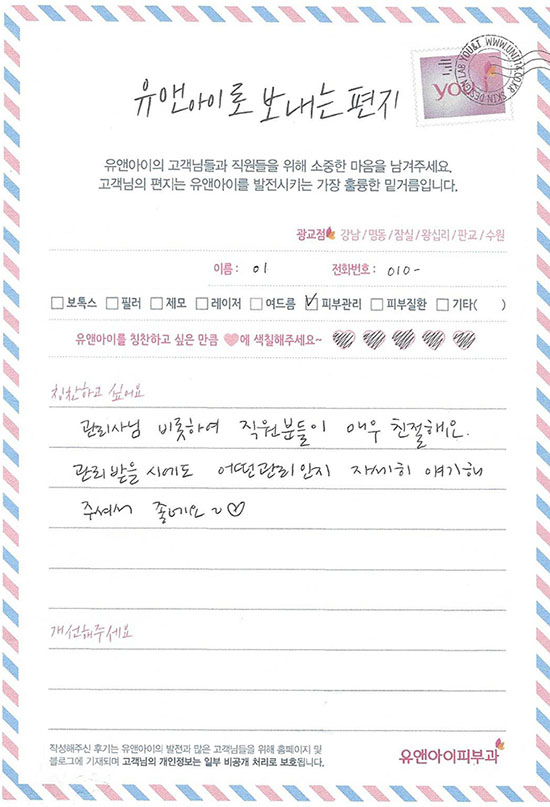 SKIN DESIGN LAB YOU&I WWW.UNI114.CO.KR
you
유앤아이로 보내는 편지
유앤아이의 고객님들과 직원들을 위해 소중한 마음을 남겨주세요.
고객님의 편지는 유앤아이를 발전시키는 가장 훌륭한 밑거름입니다.
광교점 강남/명동/잠실/왕십리/판교/수원
이름 : 이 전화번호 : 010-
보톡스 필러 제모 레이저 여드름 피부관리 피부질환 기타( )
유앤아이를 칭찬하고 싶은 만큼 에 색칠해주세요~
칭찬하고 싶어요
관리사님 비롯하여 직원분들이 매우 친절해요.
관리 받을 시에도 어떤관리인지 자세히 얘기해
주셔서 좋네요~♡
개선해주세요
작성해주신 후기는 유앤아이의 발전과 많은 고객님들을 위해 홈페이지 및
블로그에 기재되며 고객님의 개인정보는 일부 비공개 처리로 보호됩니다.
유앤아이피부과